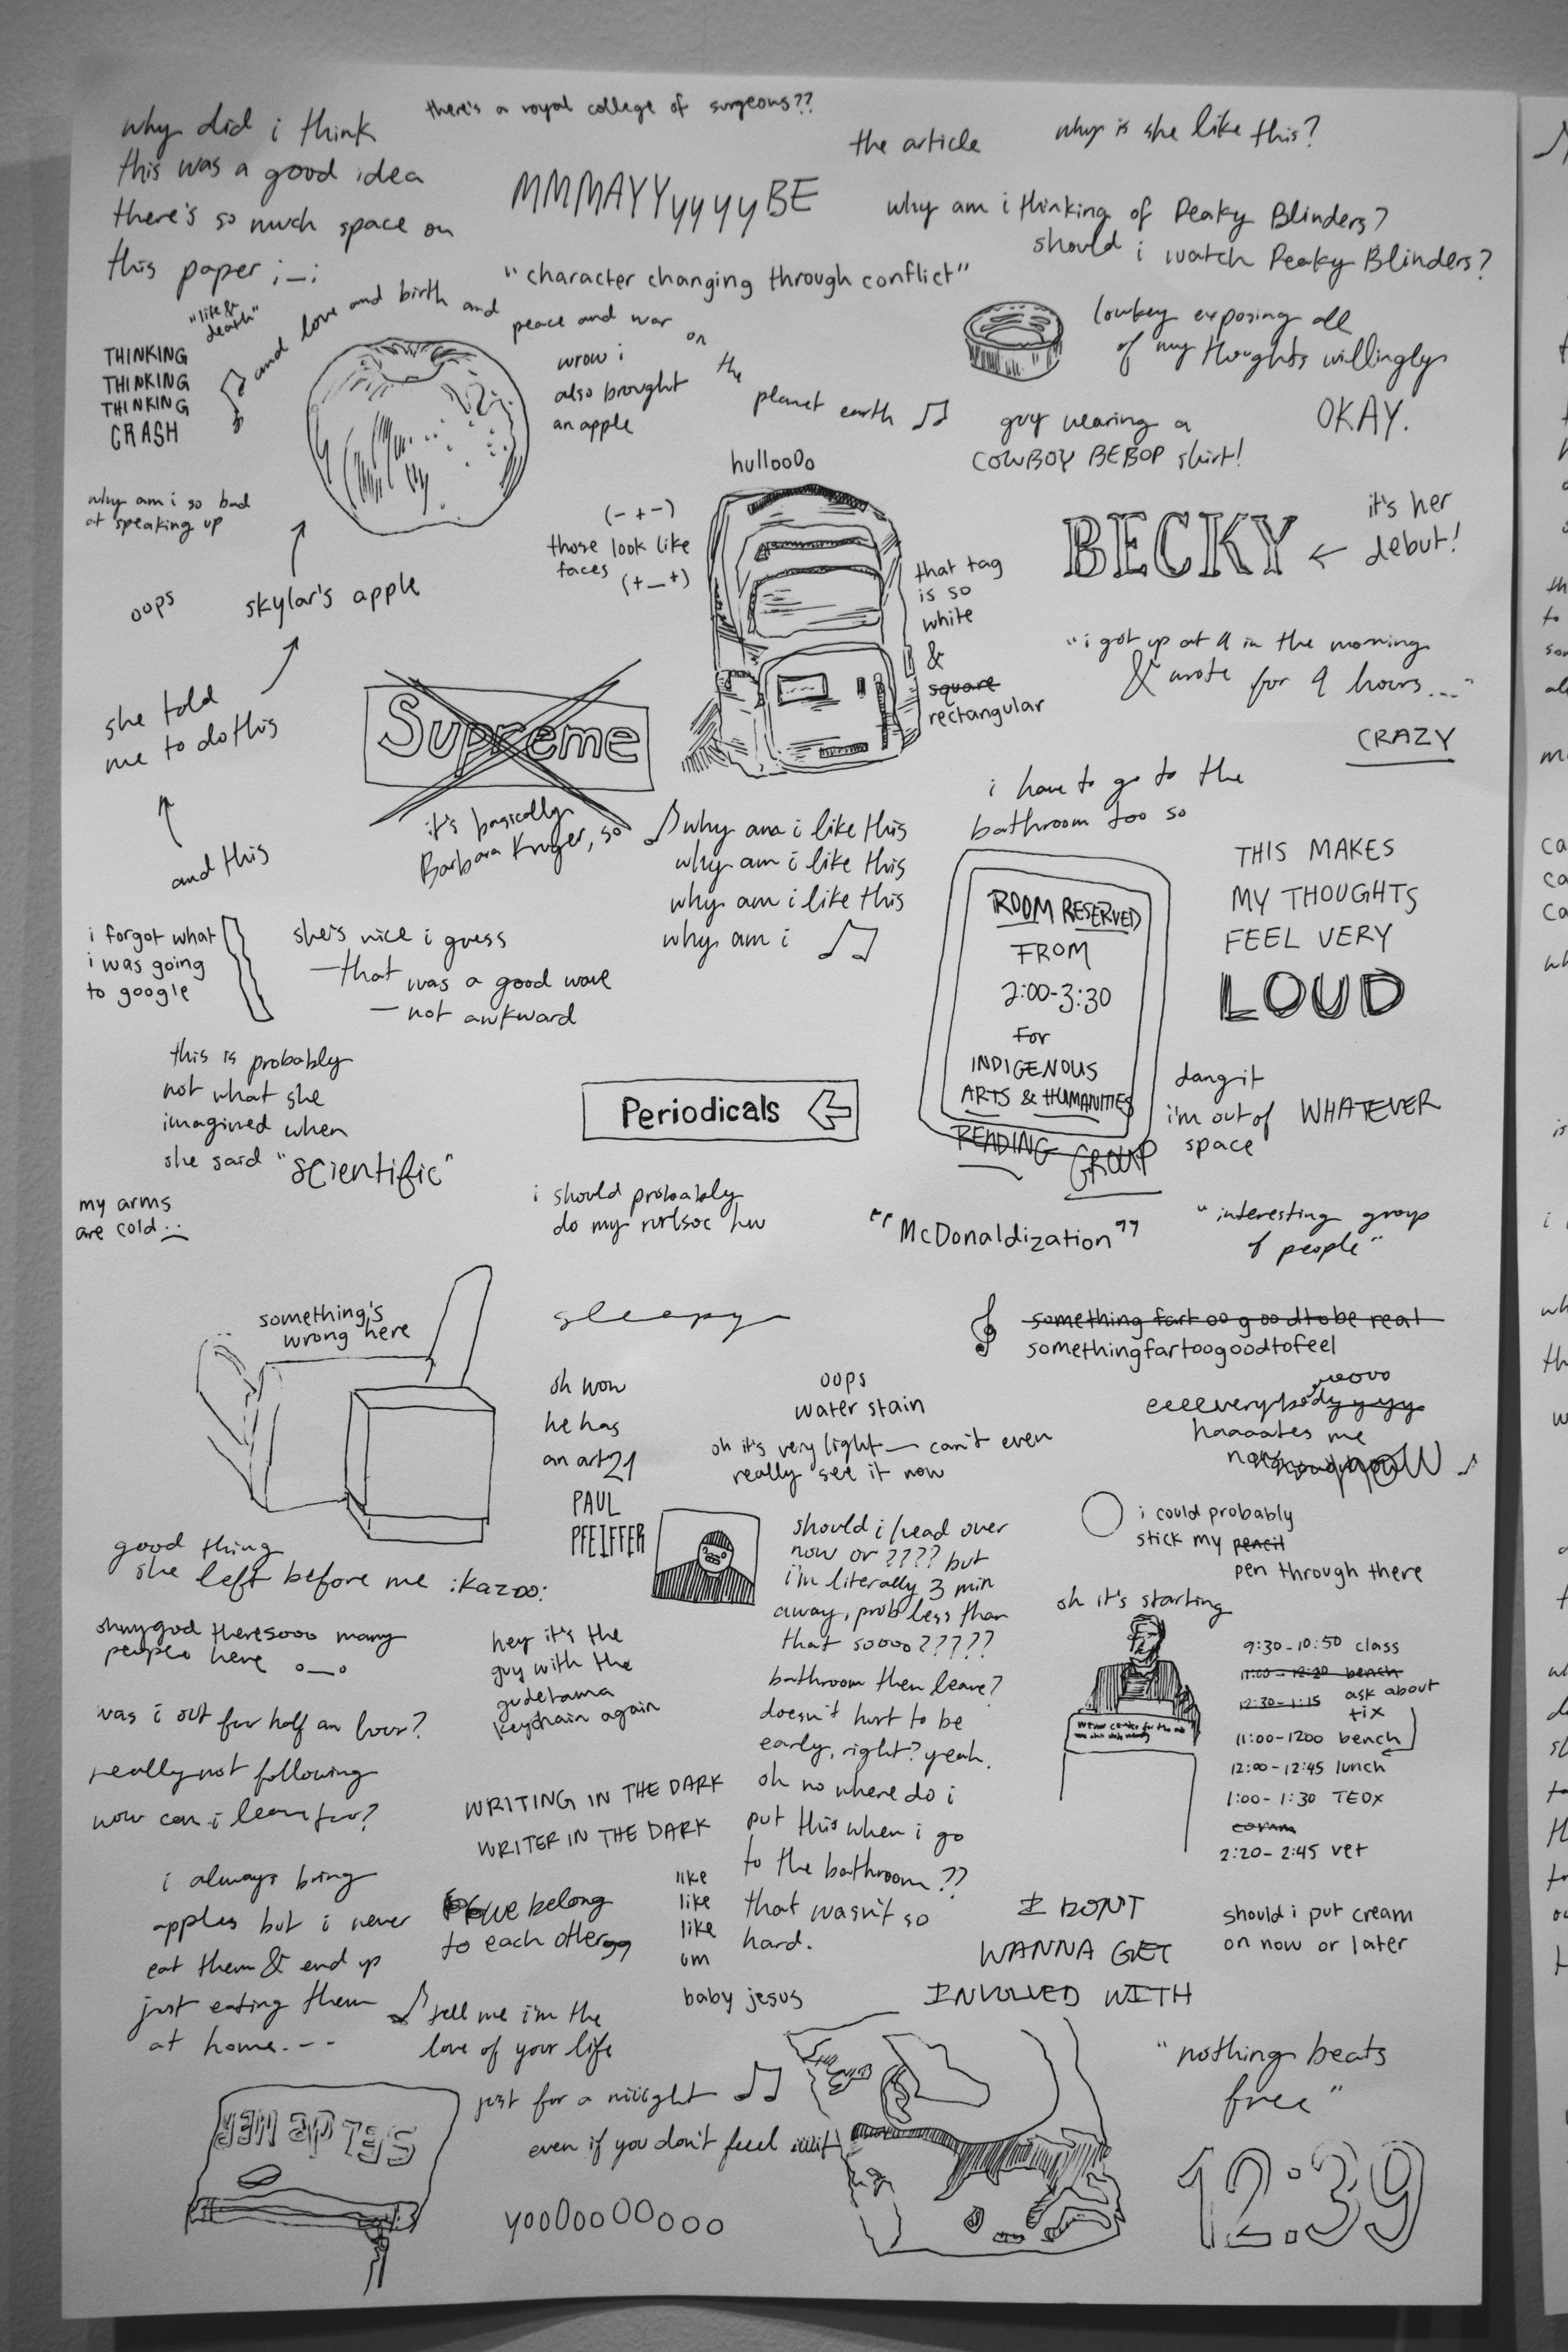 why did i think
this was a good idea
there's so much space on
this paper ;_;
there's a royal college of surgeons??
the article
why is she like this?
MMMAYYyyyyBE
why am i thinking of Peaky Blinders?
should i watch Peaky Blinders?
"character changing through conflict"
"life &
death"
THINKING
THINKING
THINKING
CRASH
and love and birth and
peace and war on the planet earth
wrow i
also brought
an apple
lowkey exposing all
of my thoughts willingly
OKAY.
guy wearing a
COWBOY BEBOP shirt!
why am i so bad
at speaking up
hullooOo
(-+-)
those look like
faces
(+_+)
that tag
is so
white
&
square
rectangular
BECKY ← it's her
debut!
oops
skylar's apple
she told
me to do this
and this
Supreme
it's basically
Barbara Kruger, so
"i got up at 9 in the morning
& wrote for 9 hours..."
CRAZY
i have to go to the
bathroom too so
why am i like this
why am i like this
why am i like this
why am i
THIS MAKES
MY THOUGHTS
FEEL VERY
LOUD
ROOM RESERVED
FROM
2:00-3:30
for
INDIGENOUS
ARTS & HUMANITIES
READING GROUP
dangit
i'm out of
space
WHATEVER
i forgot what
i was going
to google
she's nice i guess
—that was a good wave
—not awkward
this is probably
not what she
imagined when
she said "scientific"
Periodicals
my arms
are cold
i should probably
do my hw
"McDonaldization"
"interesting group
of people"
something's
wrong here
sleepy
something far too good to be real
somethingfartoogoodtofeel
oh wow
he has
an art21
PAUL
PFEIFFER
oops
water stain
oh it's very light — can't even
really see it now
eeeeverybody
haaaates me
good thing
she left before me :kazoo:
should i head over
now or ???? but
i'm literally 3 min
away, prob less than
that soooo?????
bathroom then leave?
doesn't hurt to be
early, right? yeah.
oh no where do i
put this when i go
to the bathroom??
that wasn't so
hard.
i could probably
stick my pencil
pen through there
oh it's starting
ohmygod theresooo many
people here o_o
hey it's the
guy with the
gudetama
keychain again
9:30-10:50 class
11:00-12:20 bench
12:30-1:15 ask about
tix
11:00-1200 bench
12:00-12:45 lunch
1:00-1:30 TEDx
2:20-2:45 vet
was i out for half an hour?
really not following
now can i leave
WRITING IN THE DARK
WRITER IN THE DARK
i always bring
apples but i never
eat them & end up
just eating them
at home.--
we belong
to each other
like
like
like
um
baby jesus
I DONT
WANNA GET
INVOLVED WITH
should i put cream
on now or later
tell me i'm the
love of your life
just for a niiight
even if you don't feel iiiiit
"nothing beats
free"
yooOooOOoooo
12:39